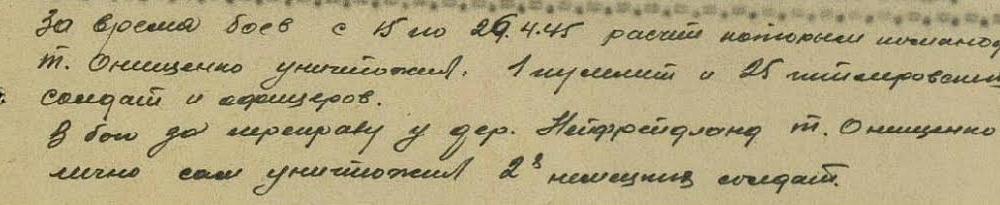 За время боев с 15 по 26.4.45 расчет которым командо
т. Онищенко уничтожил: 1 пулемет и 25 гитлеровских
солдат и офицеров.
В бою за переправу у дер. т. Онищенко
лично сам уничтожил 2х немецких солдат.